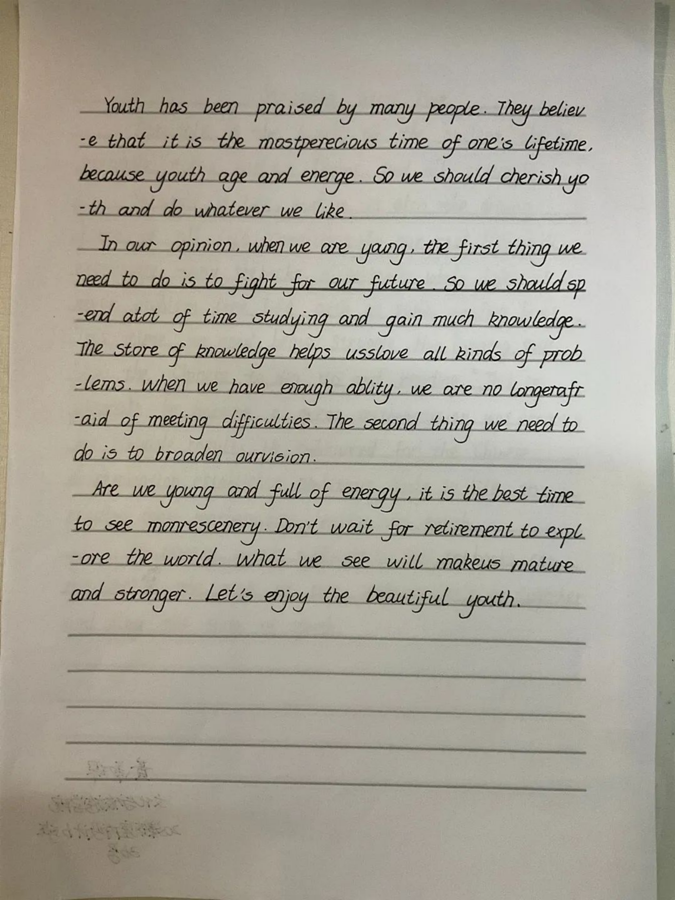 Youth has been praised by many people. They believ
-e that it is the mostperecious time of one's lifetime,
because youth age and energe. So we should cherish yo
-th and do whatever we like.
In our opinion, when we are yaung, the first thing we
need to do is to fight for our future. So we should sp
-end atot of time studying and gain much knowledge.
The store of knowledge helps usslove all kinds of prob
-lems. When we have enough ablity, we are no longerafr
-aid of meeting difficulties. The second thing we need to
do is to broaden ourvision.
Are we young and full of energy, it is the best time
to see monrescenery. Don't wait for retirement to expl
-ore the world. What we see will makeus mature
and stronger. Let's enjoy the beautiful youth.